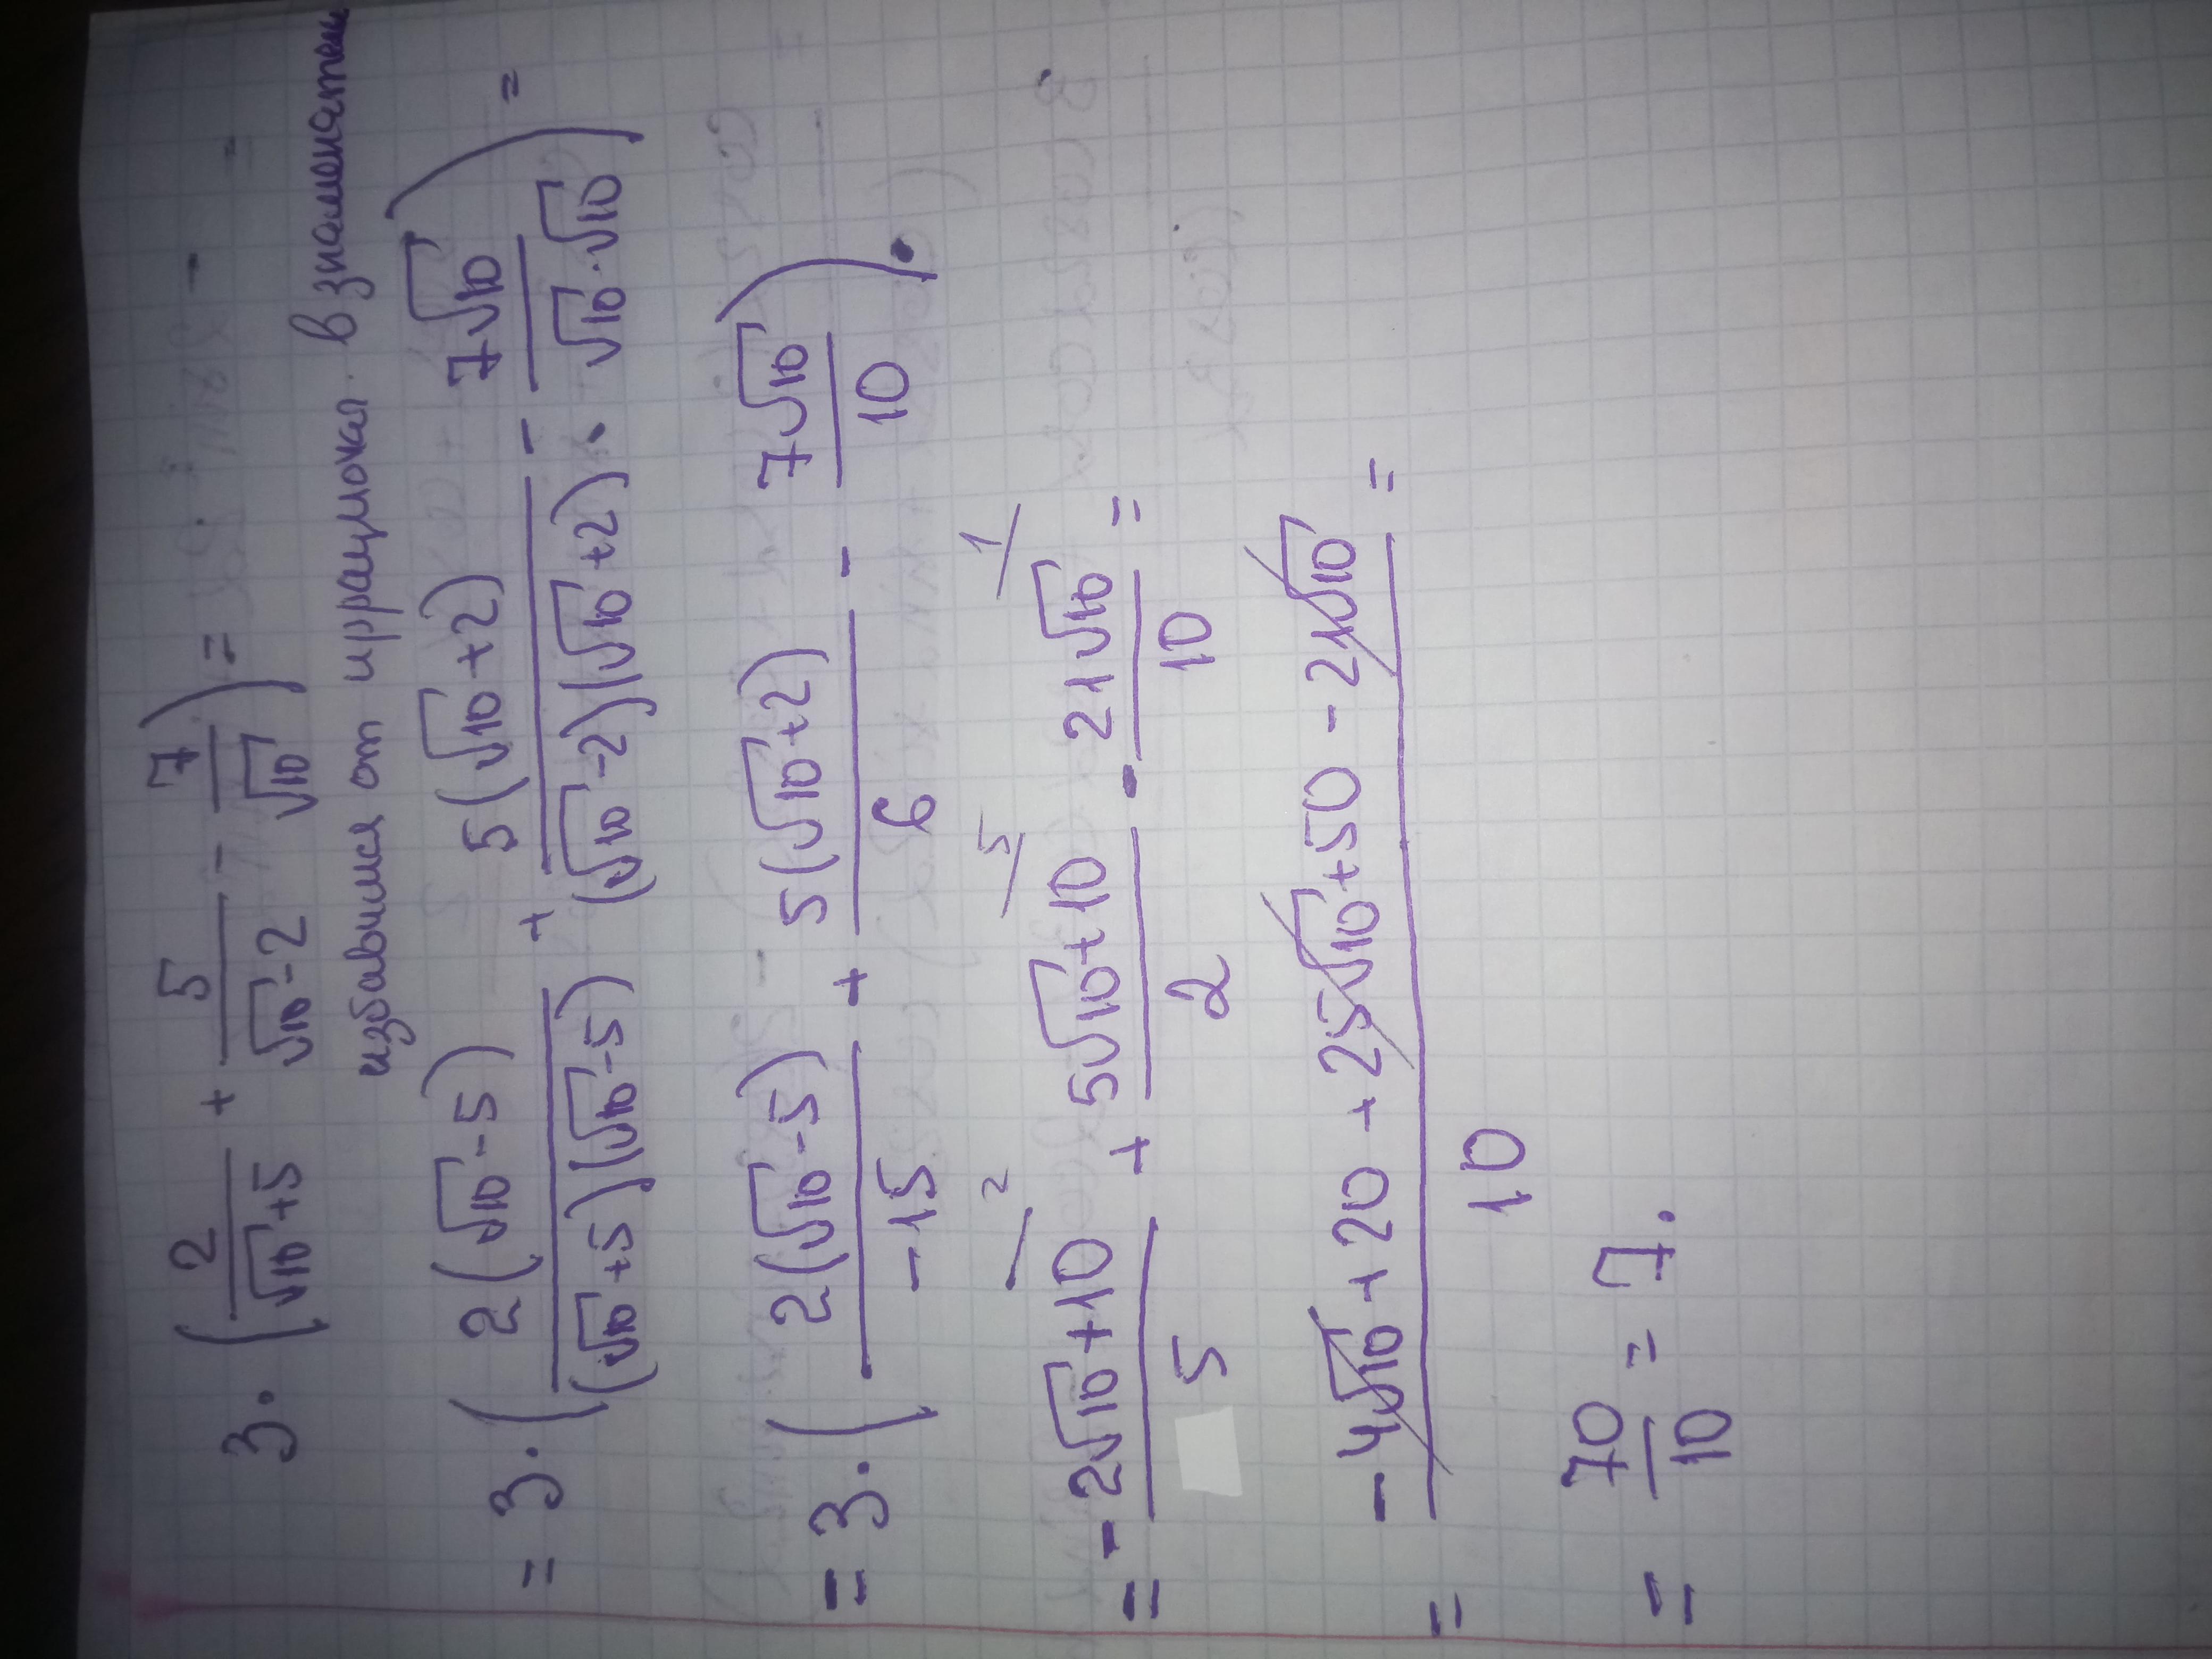 3·(2/(√10+5) + 5/(√10-2) - 7/√10) =
избавимся от иррационал. в знаменателе
= 3·(2(√10-5)/((√10+5)(√10-5)) + 5(√10+2)/((√10-2)(√10+2)) - 7√10/(√10·√10)) =
= 3·(2(√10-5)/-15 + 5(√10+2)/6 - 7√10/10).
2 5 1
= -2√10+10/5 + 5√10+10/2 - 21√10/10 =
= -4√10+20+25√10+50-21√10/10 =
= 70/10 = 7.